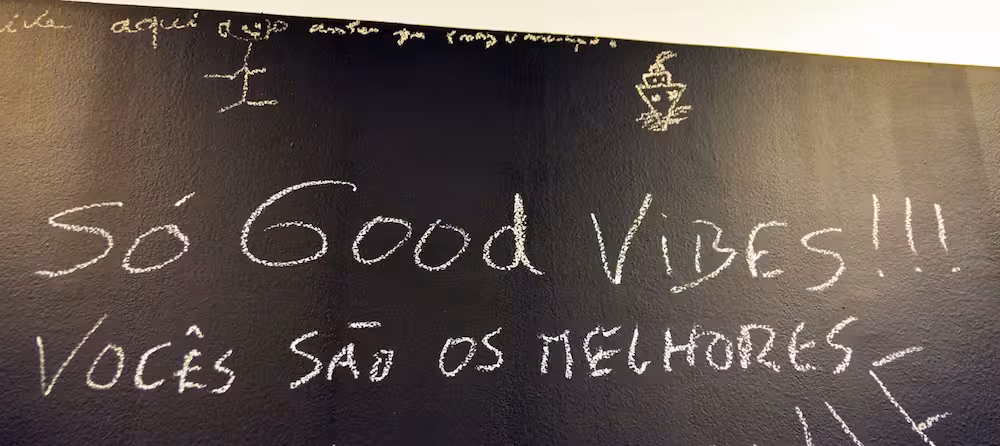 aqui
Só Good ViBES!!!
VOCÊS SÃO OS MELHORES